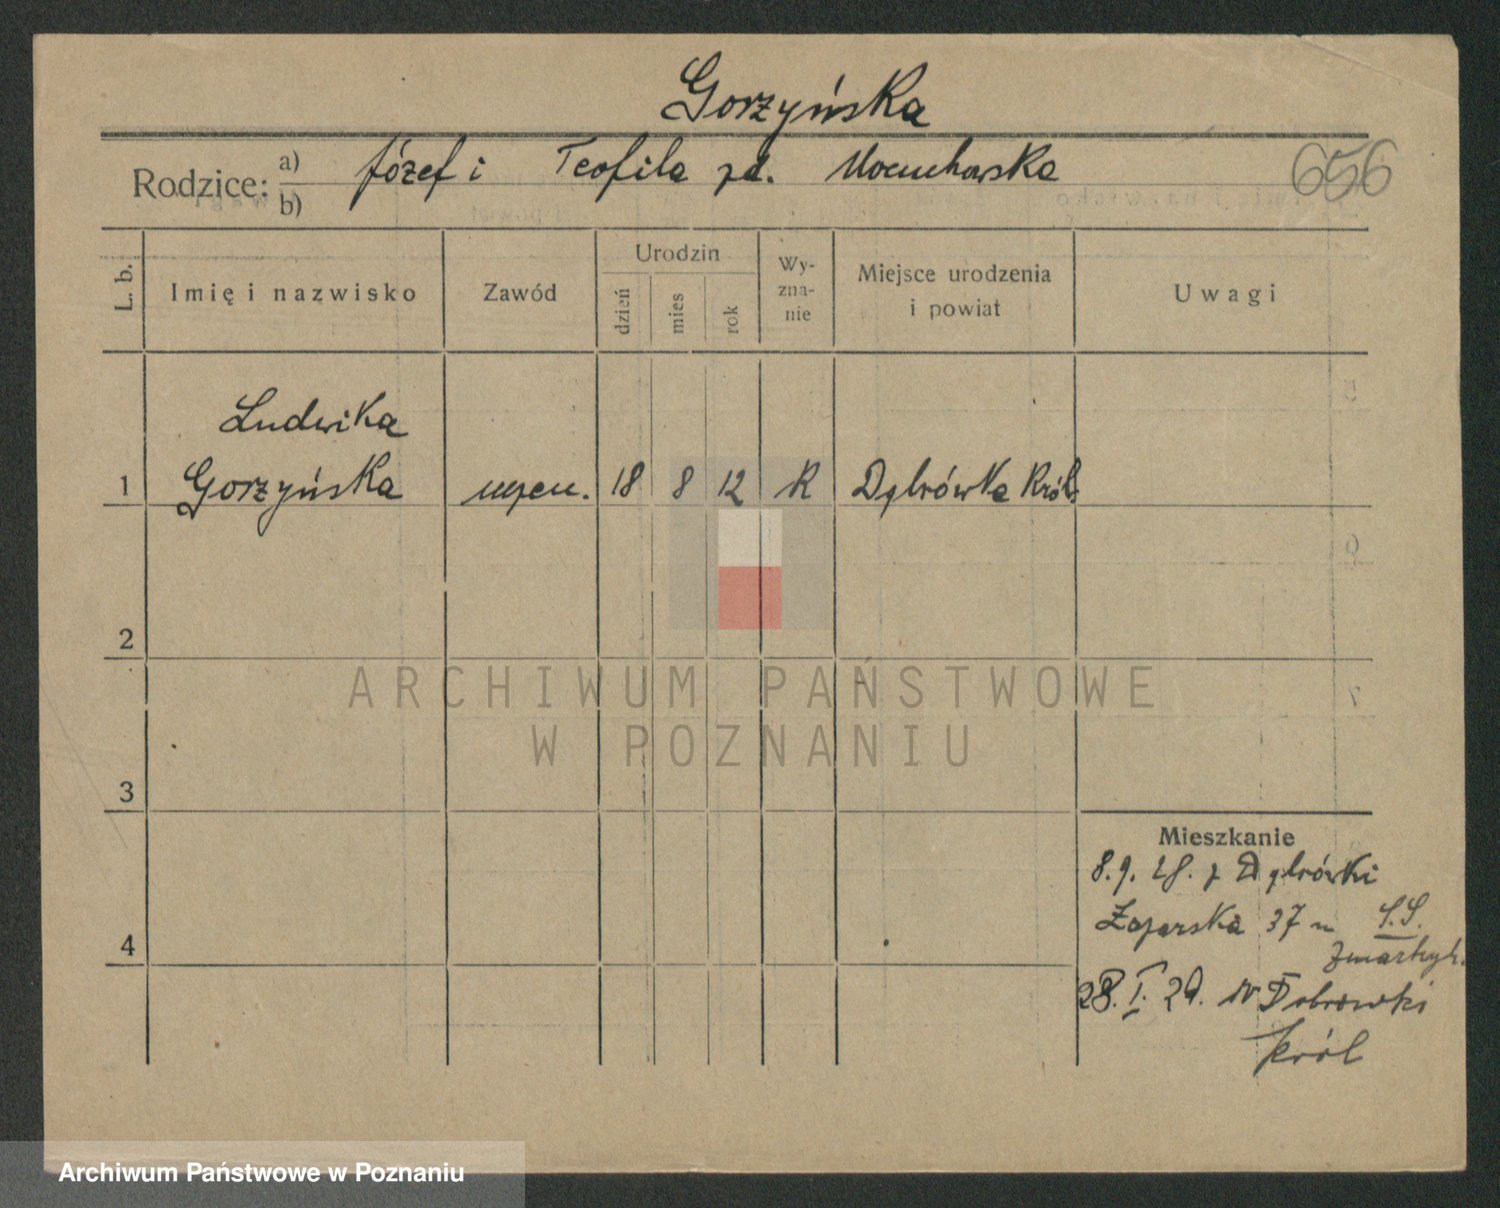 Gorzyńska
656
Rodzice: a) Józef i Teofila zd.
b)
L. b.
Imię i nazwisko
Zawód
Urodzin
dzień
mies
rok
Wy-
zna-
nie
Miejsce urodzenia
i powiat
Uwagi
Ludwika
1 Gorzyńska uczen. 18 8 12 R Dąbrówka Król.
2
3
4
Mieszkanie
8.9.28. z Dąbrówki
37 m S.S.
Zmartwych.
28.I.29. w Dobrowki
król
ARCHIWUM PAŃSTWOWE
W POZNANIU
Archiwum Państwowe w Poznaniu